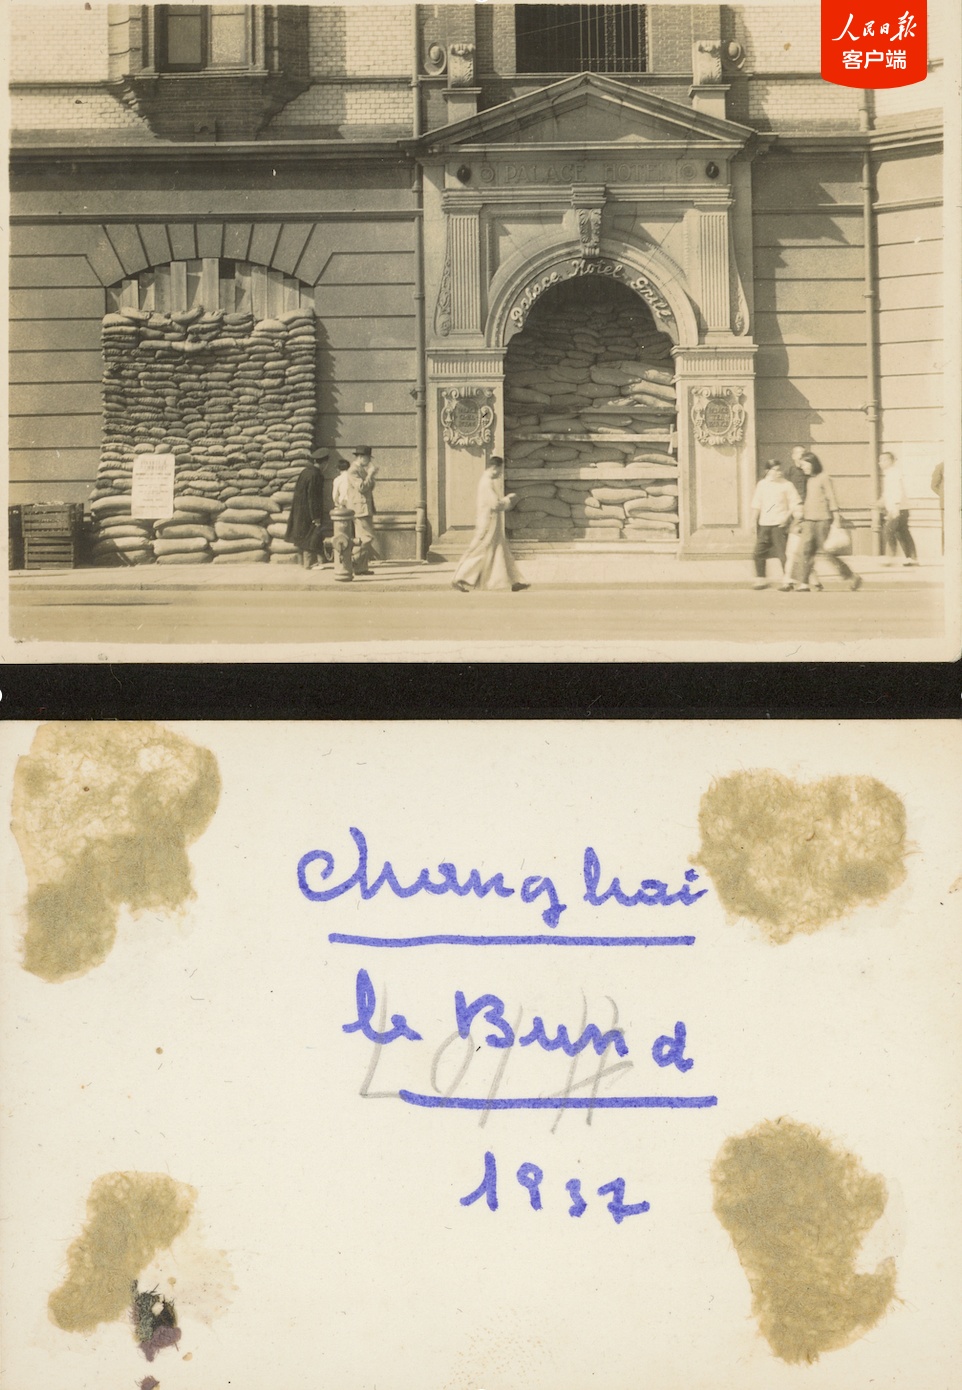 人民日报
客户端
PALACE HOTEL
Palace Hotel Grill
Changhai
le Bund
1937